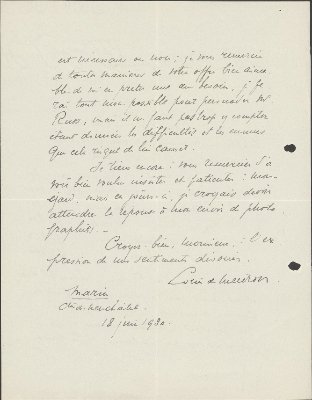 est nécessaire ou non ; je vous remercie
de toutes manières de votre offre bien aima-
ble de m'en prêter une au besoin, je fe-
rai tout mon possible pour persuader Mr
mais il ne faut pas trop y compter
étant données les difficultés et les ennuis
que cela risque de lui causer.
Je tiens encore à vous remercier d'a-
voir bien voulu insister et patienter :
mais je croyais devoir
attendre la réponse à mon envoi de photo-
graphies. –
Croyez bien, Monsieur, à l'ex-
pression de mes sentiments
Marin
Ct. de Neuchâtel.
18 juin 1930.